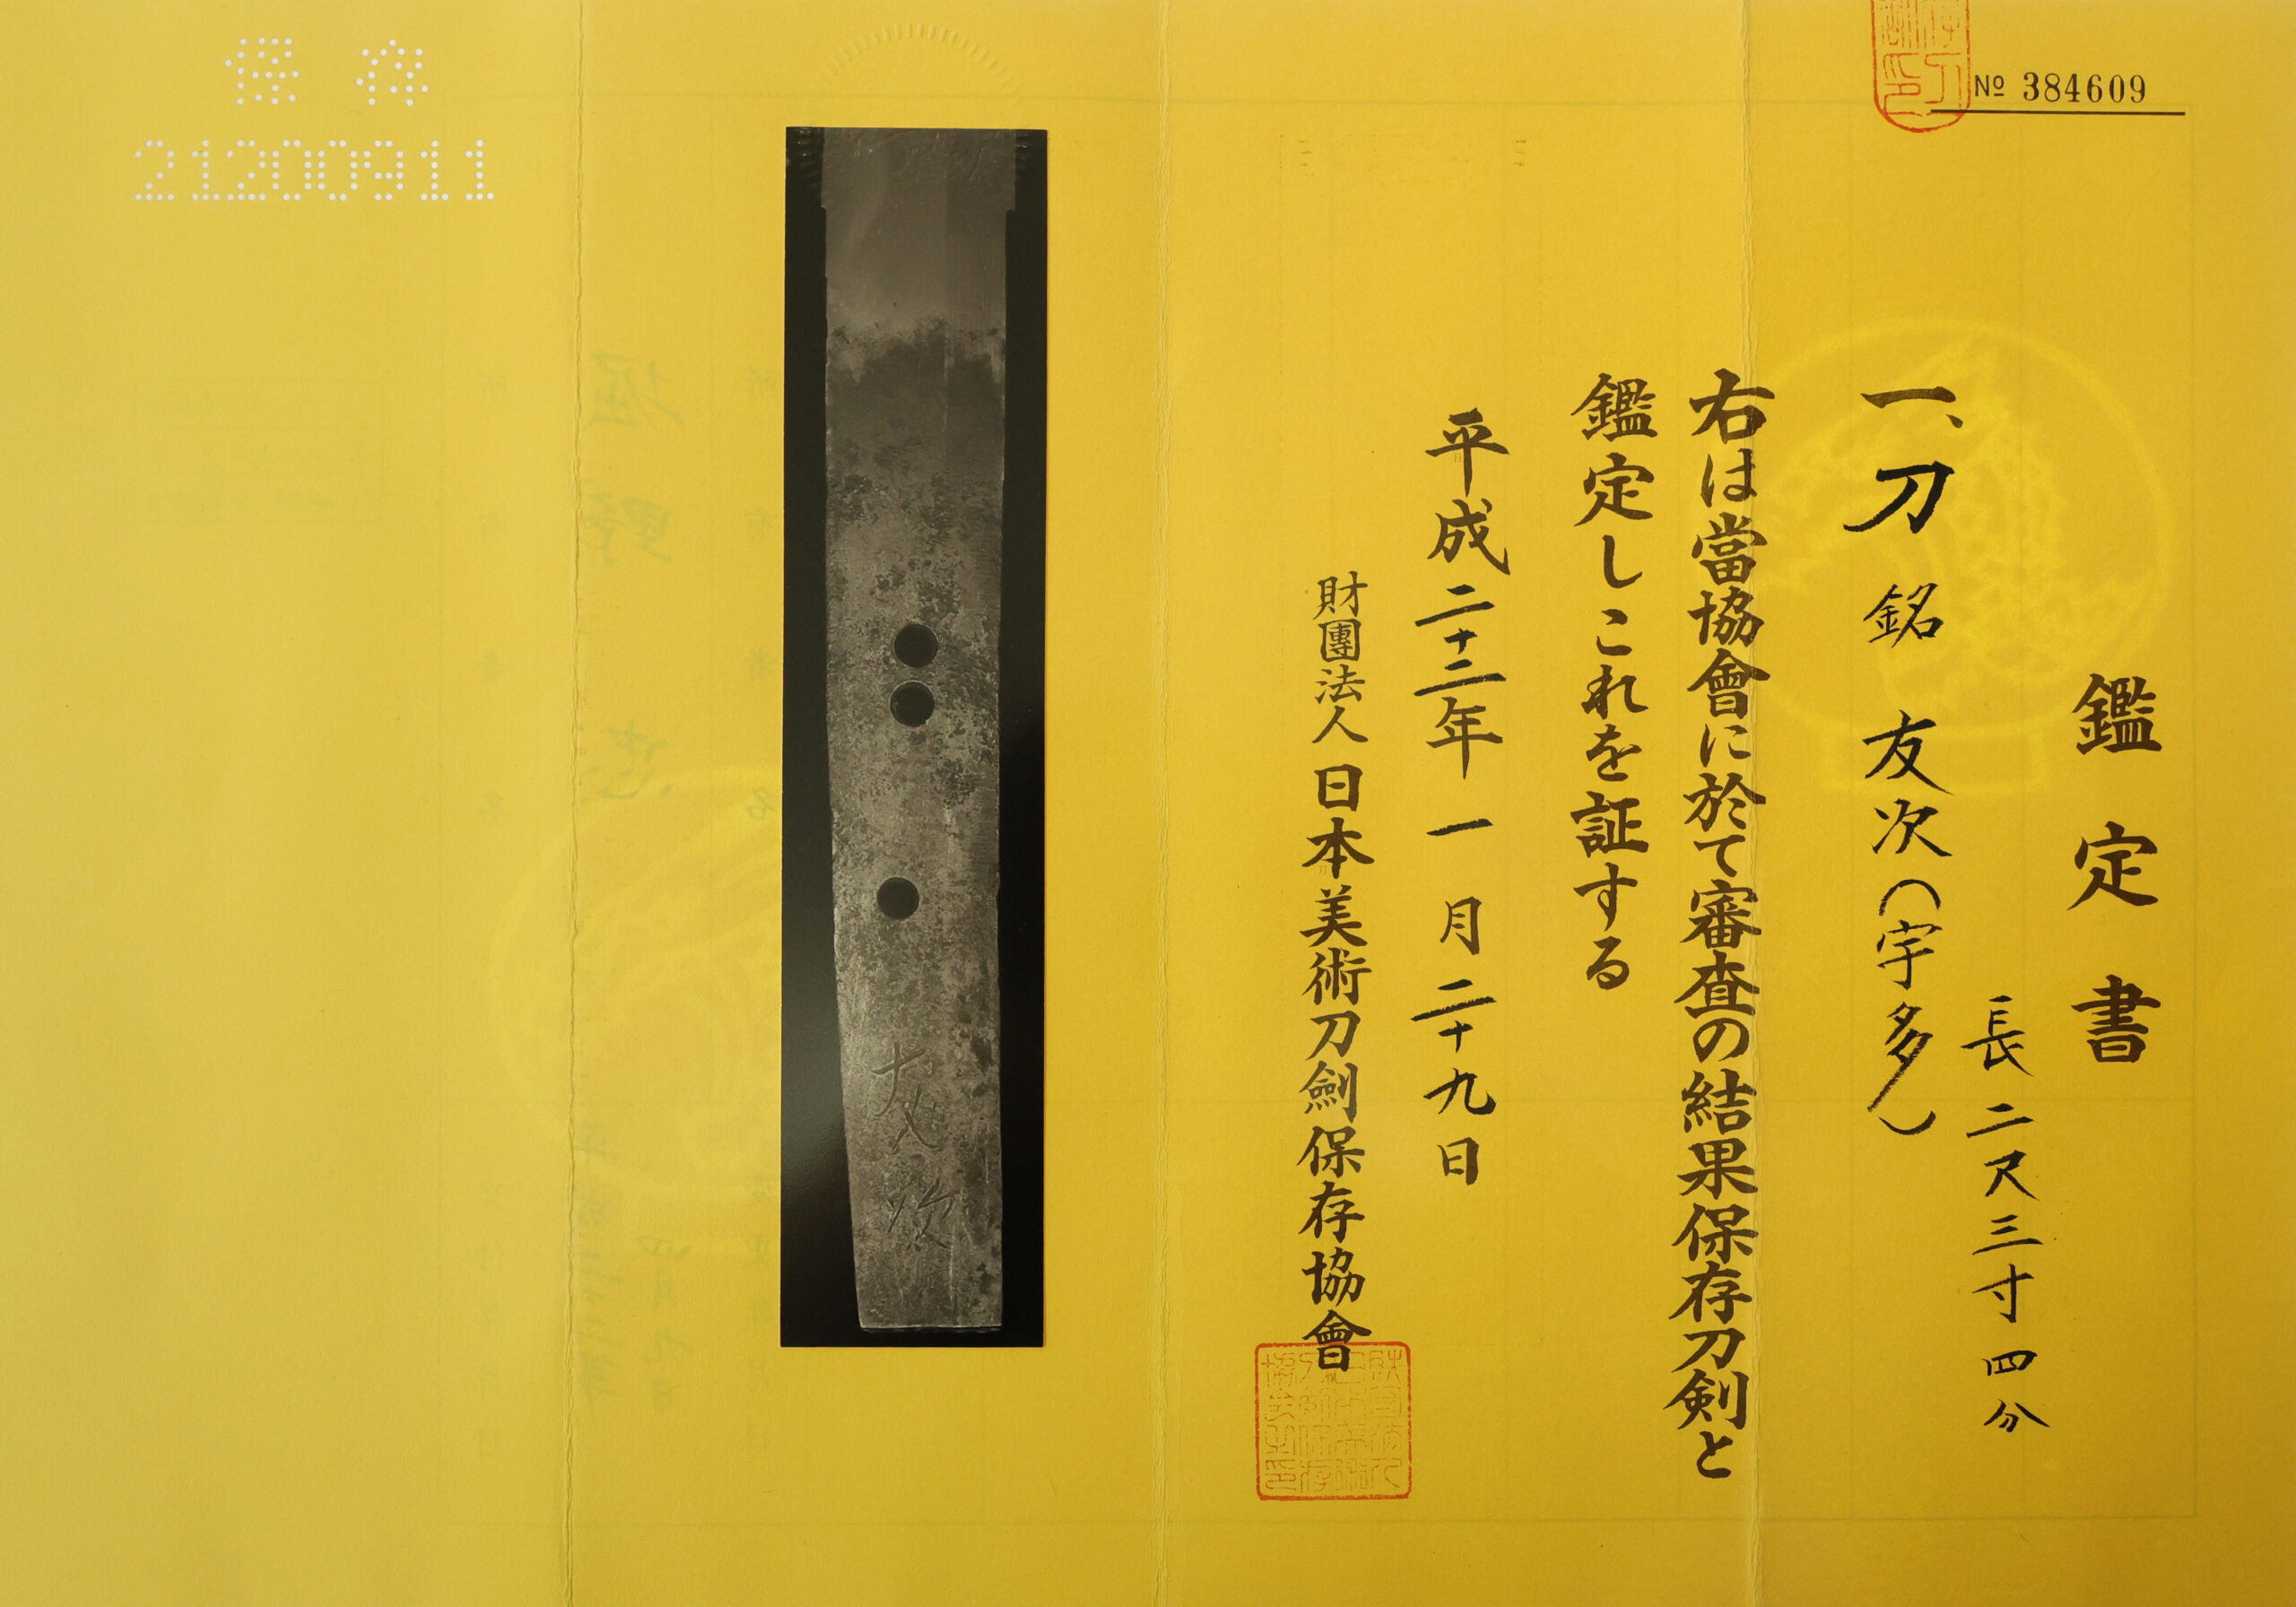 № 384609
鑑定書
長 二尺三寸四分
一、刀 銘 友次(宇多)
右は當協會に於て審査の結果保存刀剣と
鑑定しこれを証する
平成二十二年一月二十九日
財團法人 日本美術刀劍保存協會
友次
保存
21200911